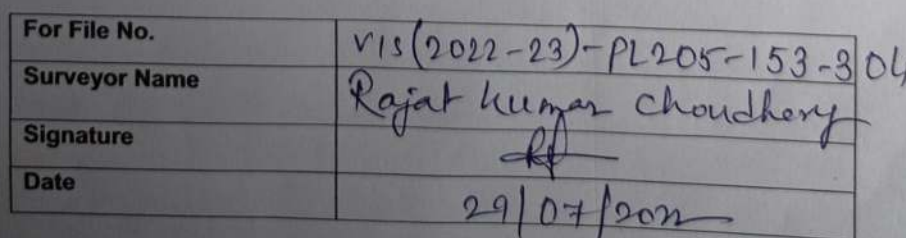 For File No. VIS(2022-23)-PL205-153-304
Surveyor Name Rajat Kumar Choudhery
Signature
Date 29/07/2022